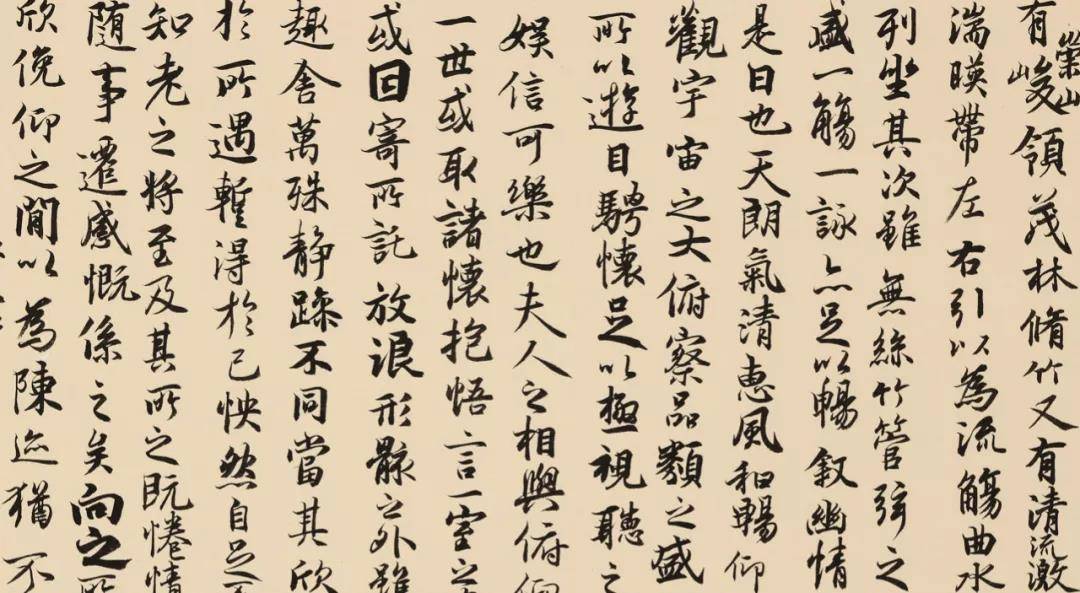 有崇山峻領茂林脩竹又有清流激
湍暎帶左右引以為流觴曲水
列坐其次雖無絲竹管弦之
盛一觴一詠亦足以暢敘幽情
是日也天朗氣清惠風和暢仰
觀宇宙之大俯察品類之盛
所以遊目騁懷足以極視聽之
娛信可樂也夫人之相與俯仰
一世或取諸懷抱悟言一室之
或因寄所託放浪形骸之外雖
趣舍萬殊靜躁不同當其欣
於所遇蹔得於己怏然自足不
知老之將至及其所之既惓情
隨事遷感慨係之矣向之所
欣俛仰之閒以為陳迹猶不